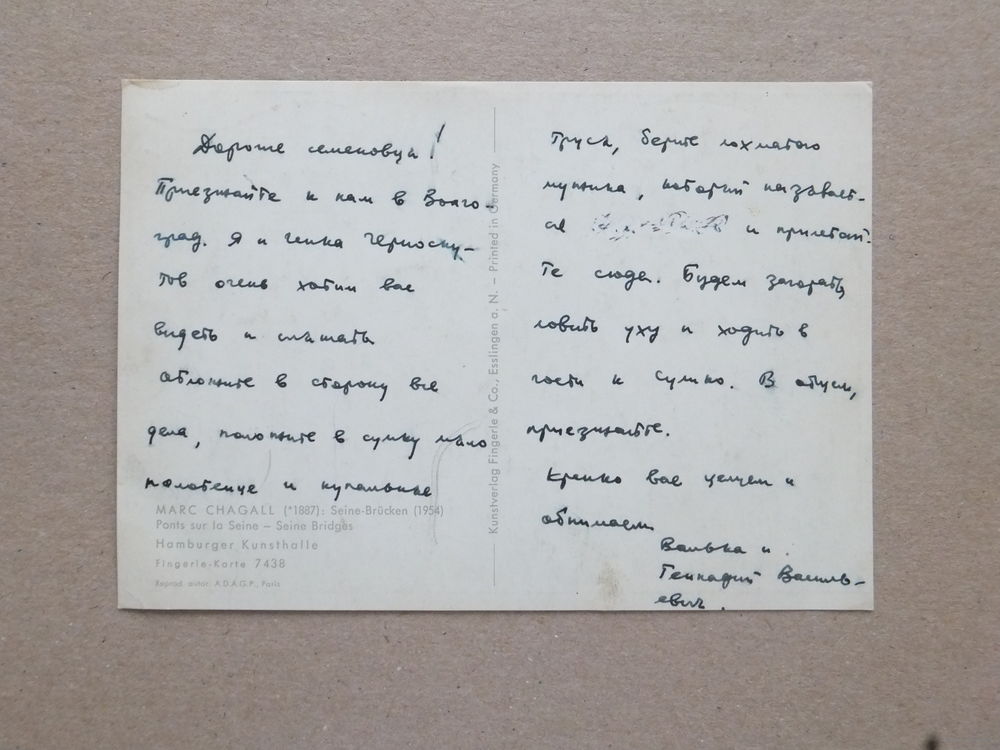 Дорогие семеновцы!
Приезжайте к нам в Волго-
град. Я и генка Черноску-
тов очень хотим вас
видеть и слышать
отложите в сторону все
дела, положите в сумку мыло
полотенце и купальные
MARC CHAGALL (*1887): Seine-Brücken (1954)
Ponts sur la Seine – Seine Bridges
Hamburger Kunsthalle
Fingerle-Karte 7438
Reprod. autor. A.D.A.G.P., Paris
Kunstverlag Fingerle & Co., Esslingen a. N. – Printed in Germany
трусы, берите лохматого
мужика, который называет-
ся и прилетай-
те сюда. Будем загорать,
ловить уху и ходить в
гости к Сулико. В общем,
приезжайте.
Крепко вас целуем и
обнимаем
Валька и
Геннадий Василь-
евич.